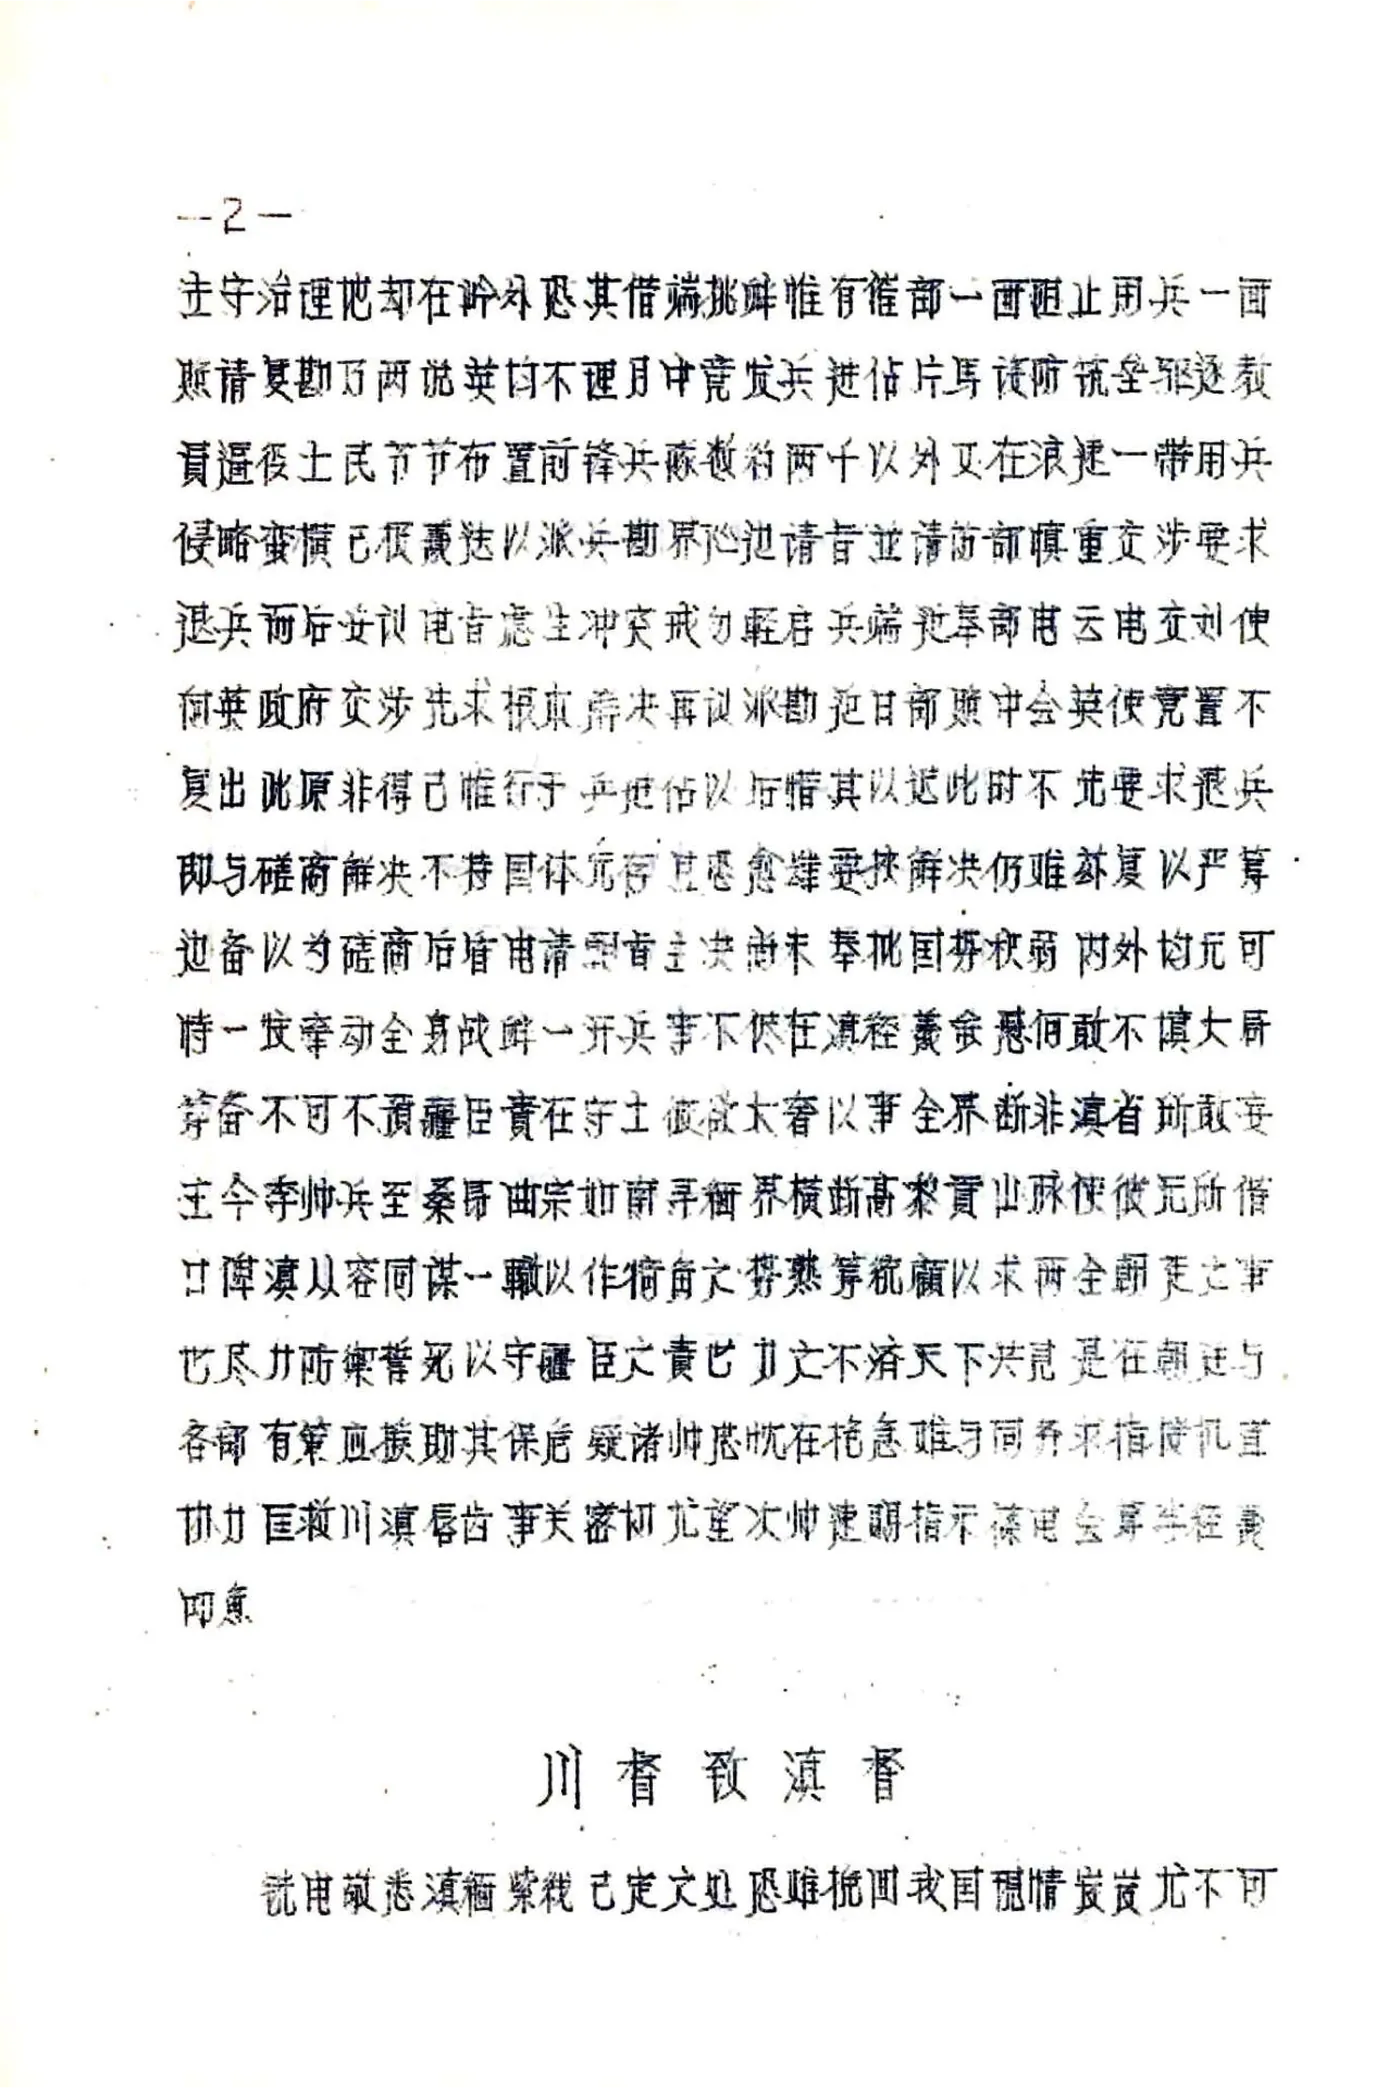 —2—
主守治理他却在岭外恐其借端挑衅惟有催部一面阻止用兵一面
照请复勘乃两说英均不理月中竟发兵进佔片马设防筑垒驱逐教
員逼役土民节节布置前锋兵队数约两千以外又在浪速一带用兵
侵略蛮横已极羲迭以派兵勘界必边请旨並请防部慎重交涉要求
退兵而后妥议电旨虑生冲突戒勿輕启兵端迎奉部电云电交刘使
向英政府交涉先求根本解决再议派勘近日部照中会英使竟置不
复出此原非得已惟行于兵进佔以后惜其以迟此时不先要求退兵
即与磋商解决不特国体元存且恐愈雄要挟解决仍难亦复以严筹
边备以为磋商后盾电请圣旨主决尚未奉批国势积弱内外均元可
恃一发牵动全身战衅一开兵事不候在滇経羲余愚何敢不慎大局
筹备不可不預疆臣責在守土彼欲太奢以事全界断非滇省所敢妄
主今李帅兵至桑昂曲宗如南寻缅界横断高黎貢山脉使彼无所借
口俾滇从容同谋一轍以作犄角之势熟筹統顧以求两全朝廷之事
也尽力防禦誓死以守疆臣之責也力之不济天下共見是在朝廷与
各部有策应援助其保危疑诸帅思忱在抱急难与同齐求指授机宜
协力匡救川滇唇齿事关密切尤望次帅速明指示葆电会筹李経羲
叩鱼
川督致滇督
銑电敬悉滇缅紫线已定文处恐难挽回我国現情岌岌尤不可